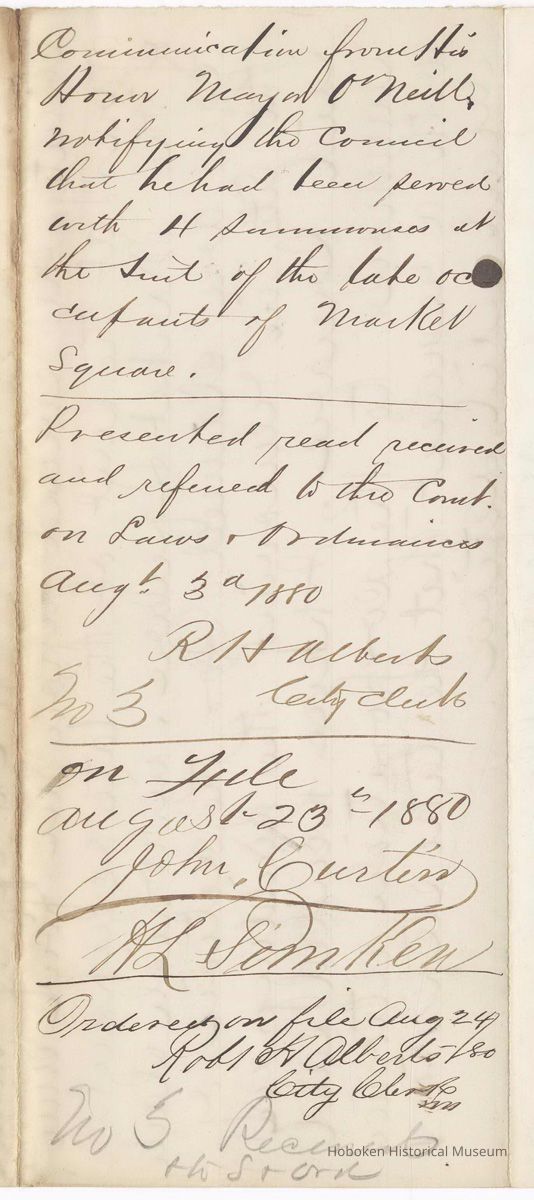 Communication from His
Honor Mayor O'Neill,
notifying the Council
that he had been served
with 4 summonses at
the Suit of the late oc
cupants of Market
Square.
Presented read received
and referred to the Comt.
on Laws & Ordinances
Augt. 3d 1880
R H Alberts
City Clerk
No 3
on File
august 23rd 1880
John Curtin
H L Timken
Ordered on file Aug 24
Robt H Alberts /80
City Clerk
No 5 Recent
Hoboken Historical Museum
& Ord